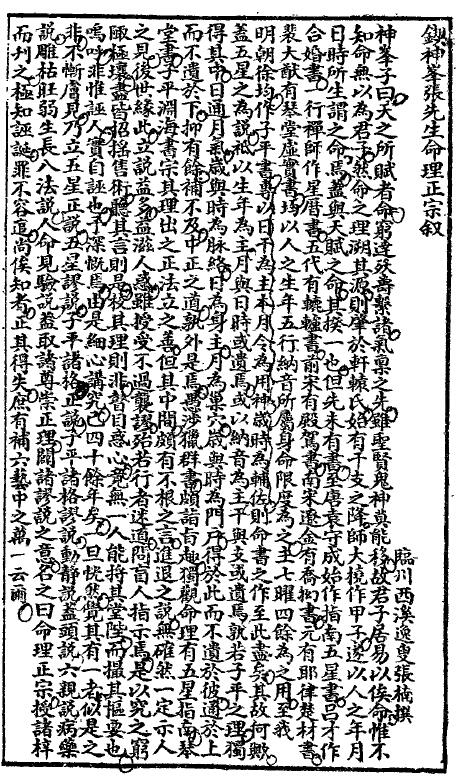 鍥神峯張先生命理正宗叙
臨川西溪逸叟張楠撰
神峯子曰天之所賦者命窮達殀壽繫諸氣禀之先雖聖賢鬼神莫能移故君子居易以俟命惟不
知命無以為君子然命之理溯其源則肇於軒轅氏始有干支之降師大撓作甲子遂以人之年月
日時所生謂之命焉蓋與天賦之命其揆一也但先未有書至唐袁守成始作指南五星書呂才作
合婚書 行禪師作星曆書五代有轆轤書前宋有殿駕書南宋遼金有喬拗書元有耶律楚材書
裴大猷有琴堂虛實書 以人之生年五行納音所屬身命限度為之主七曜四餘為之用至我
明朝徐均作子平書專以日干為主本月令為用神歲時為輔佐則命書之作至此盡矣其故何歟
蓋五星之為說祗以生年為主月與日時或遺焉或以納音為主平與支或遺焉孰若子平之理獨
得其中日通月氣歲與時為脉絡日為身主月為巢穴歲與時為門戶得於此而不遺於彼 於上
而不遺於下抑有餘補不及中正之道孰外是焉愚涉獵群書頗諳旨趣獨觀命理有五星指南琴
堂書子平淵海書宗其理出之正法立之善但其中間頗有不根之言進退之說無確然一定示人
之見後世緣此立說益多益滋人惑雖授受不過襲謬殆若行者迷道問盲人指示焉是以究之窮
陬極壤盡皆招搖售術聽其言則是核其理則非瞽目惑心竟無一人能将其堂陛而撮其樞要也
嗚呼非惟誣人實自誣也予深慨焉由是細心講究已四十餘年矣一旦恍然覺其有一者似是之
非不慚膚見乃立五星正說五星謬說子平諸格正說子平諸格謬說動靜說蓋頭說六親說病藥
說雕枯旺弱生長八法說人命見驗說蓋取諸尊崇正理闢諸謬說之意名之曰命理正宗 諸梓
而刊之極知誣誕罪不容逭尚俟知者正其得失庶有補六藝中之萬一云爾